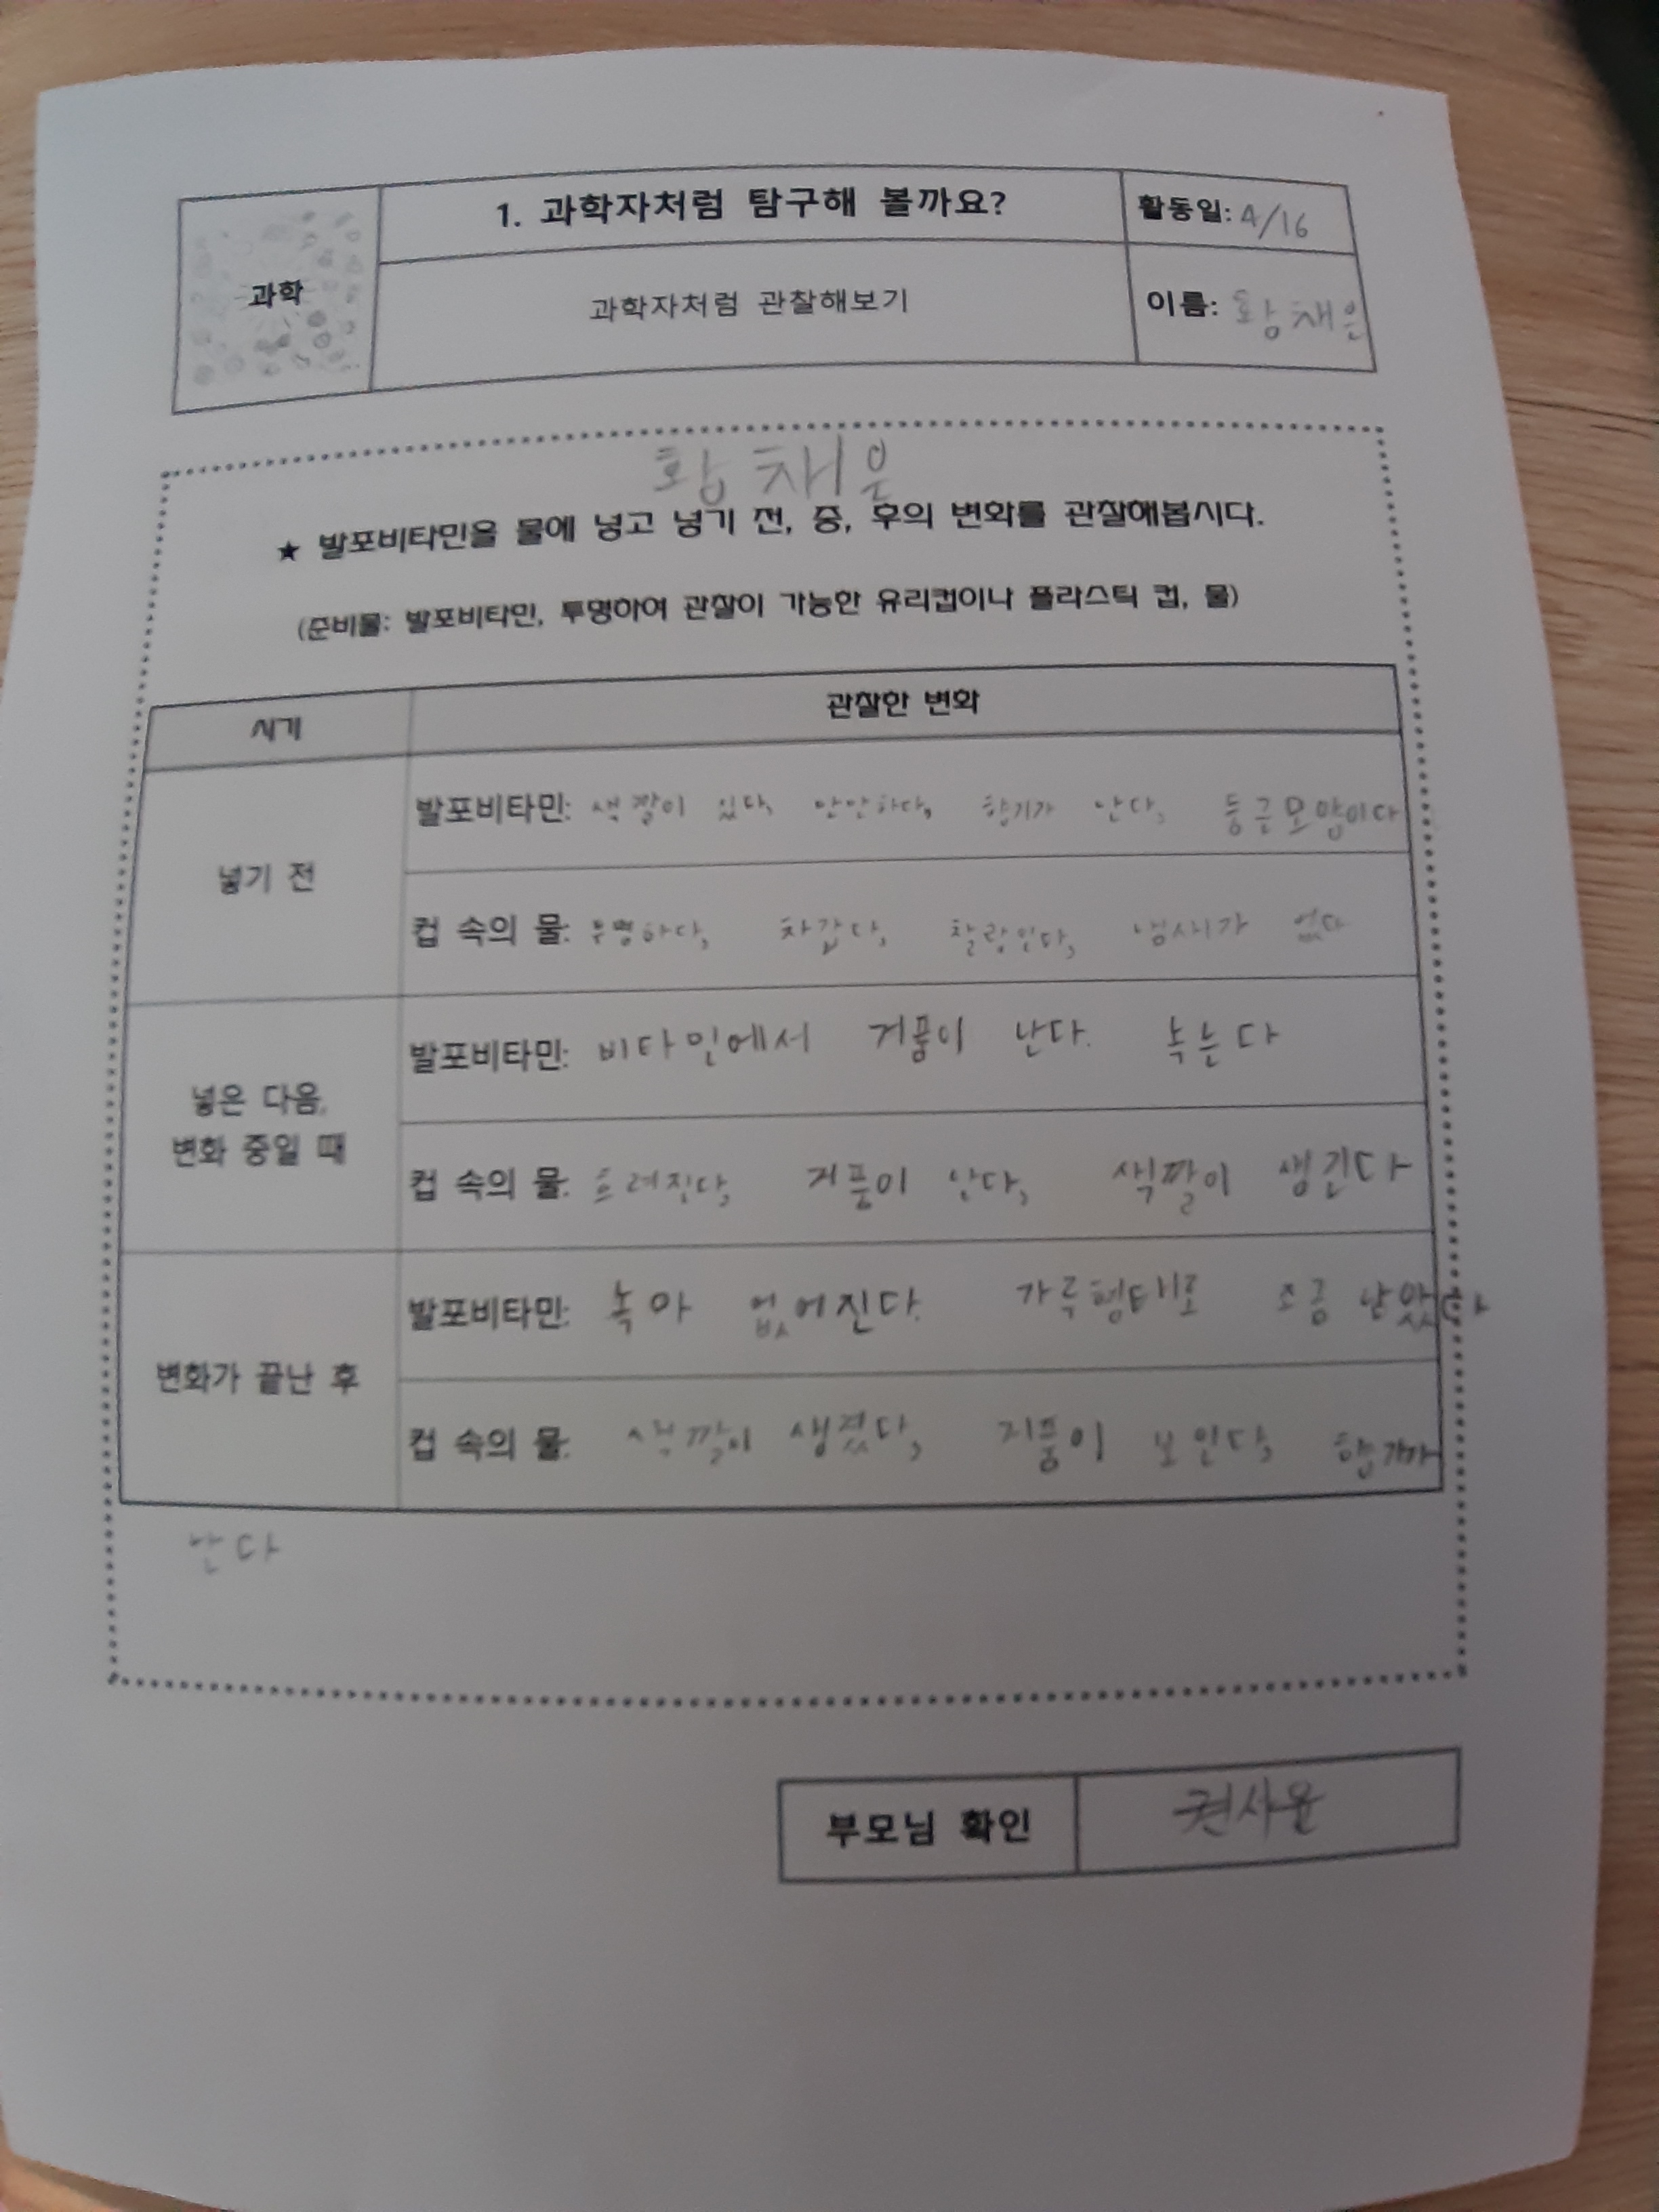 과학
1. 과학자처럼 탐구해 볼까요?
활동일: 4/16
과학자처럼 관찰해보기
이름: 황채은
황채은
★ 발포비타민을 물에 넣고 넣기 전, 중, 후의 변화를 관찰해봅시다.
(준비물: 발포비타민, 투명하여 관찰이 가능한 유리컵이나 플라스틱 컵, 물)
시기
관찰한 변화
넣기 전
발포비타민: 색깔이 있다, 향기가 난다, 둥근모양이다
컵 속의 물: 투명하다, 차갑다, 찰랑인다, 냄새가 없다
넣은 다음,
변화 중일 때
발포비타민: 비타민에서 거품이 난다. 녹는다
컵 속의 물: 흐려진다, 거품이 난다, 색깔이 생긴다
변화가 끝난 후
발포비타민: 녹아 없어진다. 가루형태로 조금 남았다
컵 속의 물: 색깔이 생겼다, 거품이 보인다, 향기가
난다
부모님 확인